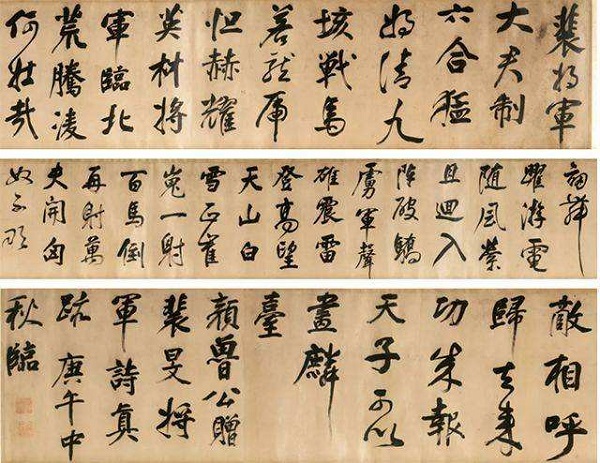 裴將軍
大君制
六合猛
将清九
垓戰馬
若龍虎
怛赫耀
英材將
軍臨北
荒騰淩
何壯哉
劒舞
躍游電
随風縈
且迴入
陣破驕
虜軍聲
雄震雷
登高望
天山白
雪正崔
嵬一射
百馬倒
再射萬
夫開匈
奴不敢
敵相呼
歸去来
功成報
天子可以
畫麟
臺
顔魯公贈
裴旻將
軍詩真
跡 庚午中
秋臨